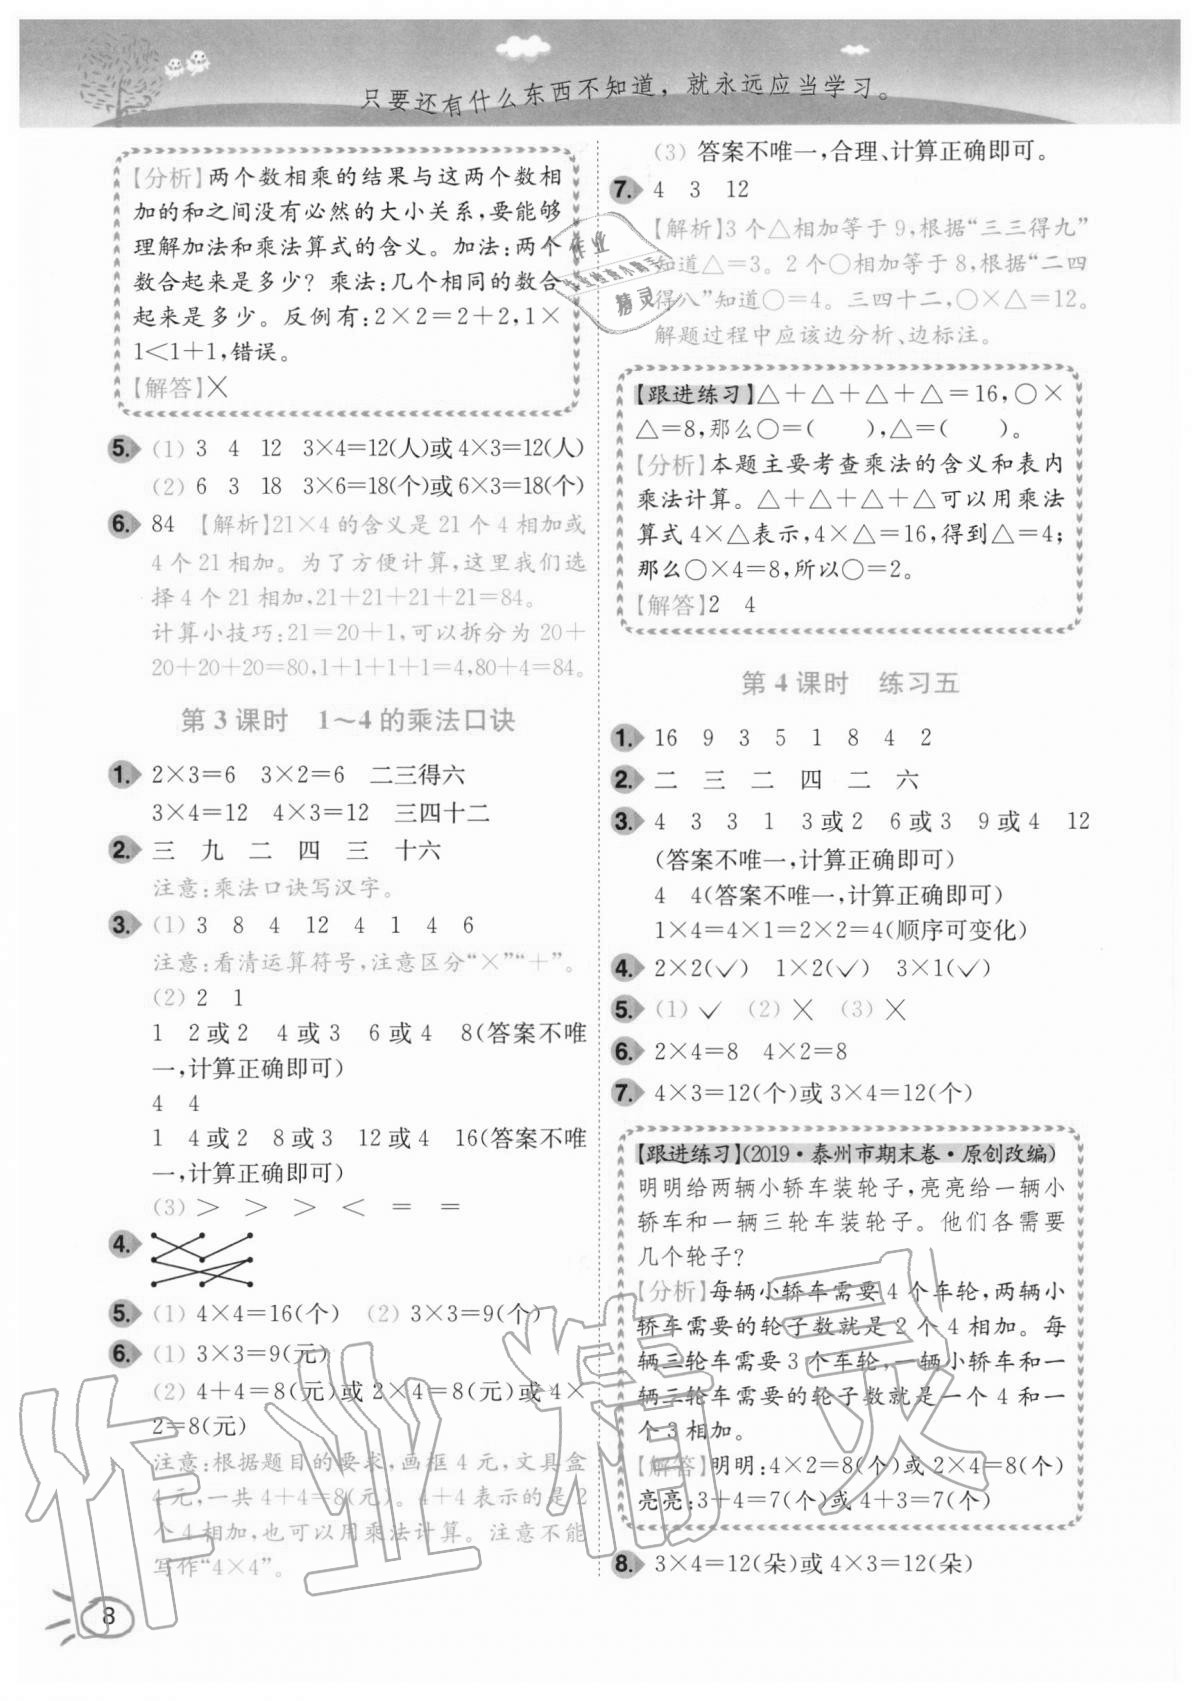 只要还有什么东西不知道，就永远应当学习。
【分析】两个数相乘的结果与这两个数相
加的和之间没有必然的大小关系,要能够
理解加法和乘法算式的含义。加法:两个
数合起来是多少？乘法:几个相同的数合
起来是多少。反例有:2×2=2+2,1×
1<1+1,错误。
【解答】×
5. (1) 3 4 12 3×4=12(人)或4×3=12(人)
(2) 6 3 18 3×6=18(个)或6×3=18(个)
6. 84 【解析】21×4的含义是21个4相加或
4个21相加。为了方便计算,这里我们选
择4个21相加,21+21+21+21=84。
计算小技巧:21=20+1,可以拆分为20+
20+20+20=80,1+1+1+1=4,80+4=84。
第3课时 1~4的乘法口诀
1. 2×3=6 3×2=6 二三得六
3×4=12 4×3=12 三四十二
2. 三 九 二 四 三 十六
注意:乘法口诀写汉字。
3. (1) 3 8 4 12 4 1 4 6
注意:看清运算符号,注意区分“×”“+”。
(2) 2 1
1 2或2 4或3 6或4 8(答案不唯
一,计算正确即可)
4 4
1 4或2 8或3 12或4 16(答案不唯
一,计算正确即可)
(3) > > > < = =
4.
5. (1) 4×4=16(个) (2) 3×3=9(个)
6. (1) 3×3=9(元)
(2) 4+4=8(元)或2×4=8(元)或4×
2=8(元)
注意:根据题目的要求,画框4元,文具盒
4元,一共4+4=8(元)。4+4表示的是2
个4相加,也可以用乘法计算。注意不能
写作“4×4”。
8
(3) 答案不唯一,合理、计算正确即可。
7. 4 3 12
【解析】3个△相加等于9,根据“三三得九”
知道△=3。2个○相加等于8,根据“二四
得八”知道○=4。三四十二,○×△=12。
解题过程中应该边分析、边标注。
【跟进练习】△+△+△+△=16,○×
△=8,那么○=( ),△=( )。
【分析】本题主要考查乘法的含义和表内
乘法计算。△+△+△+△可以用乘法
算式4×△表示,4×△=16,得到△=4;
那么○×4=8,所以○=2。
【解答】2 4
第4课时 练习五
1. 16 9 3 5 1 8 4 2
2. 二 三 二 四 二 六
3. 4 3 3 1 3或2 6或3 9或4 12
(答案不唯一,计算正确即可)
4 4(答案不唯一,计算正确即可)
1×4=4×1=2×2=4(顺序可变化)
4. 2×2(✓) 1×2(✓) 3×1(✓)
5. (1) ✓ (2) × (3) ×
6. 2×4=8 4×2=8
7. 4×3=12(个)或3×4=12(个)
【跟进练习】(2019·泰州市期末卷·原创改编)
明明给两辆小轿车装轮子,亮亮给一辆小
轿车和一辆三轮车装轮子。他们各需要
几个轮子?
【分析】每辆小轿车需要4个车轮,两辆小
轿车需要的轮子数就是2个4相加。每
辆三轮车需要3个车轮,一辆小轿车和一
辆三轮车需要的轮子数就是一个4和一
个3相加。
【解答】明明:4×2=8(个)或2×4=8(个)
亮亮:3+4=7(个)或4+3=7(个)
8. 3×4=12(朵)或4×3=12(朵)
作业
精灵
作业精灵